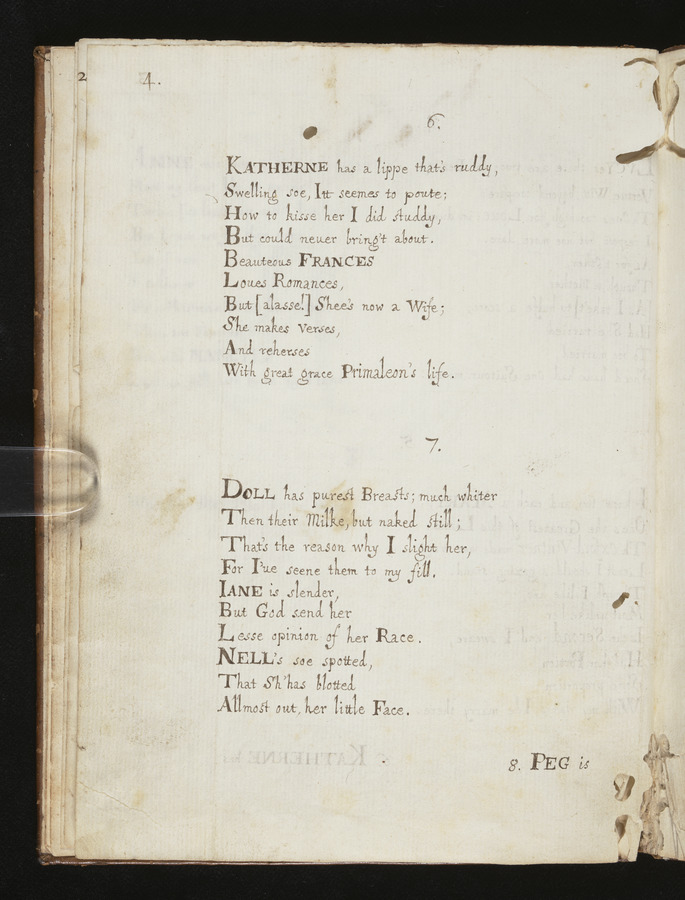 2
4.
6.
KATHERNE has a lippe that's ruddy,
Swelling soe, Itt seemes to poute;
How to kisse her I did studdy,
But could neuer bring't about.
Beauteous FRANCES
Loues Romances,
But [alasse!] Shee's now a Wife;
She makes Verses,
And reherses
With great grace Primaleon's life.
7.
DOLL has purest Breasts; much whiter
Then their Milke, but naked still;
That's the reason why I slight her,
For I'ue seene them to my fill.
IANE is slender,
But God send her
Lesse opinion of her Race.
NELL's soe spotted,
That Sh'has blotted
Allmost out, her little Face.
8. PEG is